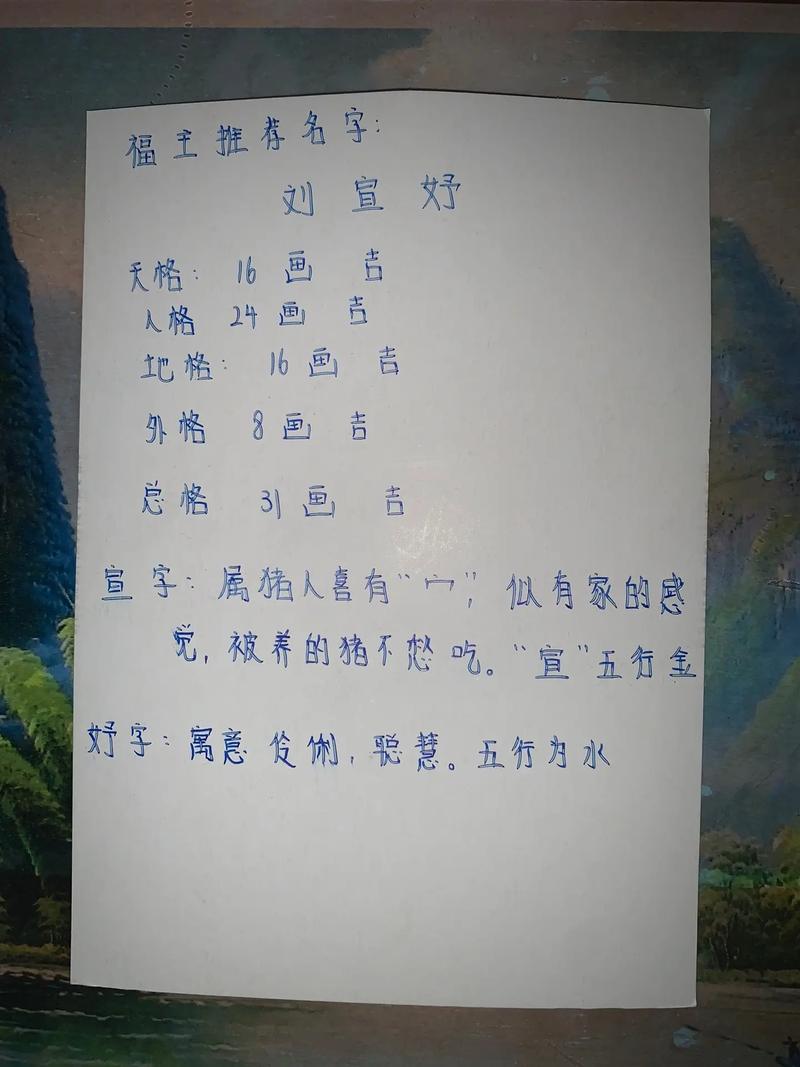 福主推荐名字:
刘宣妤
天格: 16画 吉
人格 24画 吉
地格: 16画 吉
外格 8画 吉
总格 31画 吉
宣字: 属猪人喜有“宀”, 似有家的感
觉, 被养的猪不愁吃。“宣”五行金
妤字: 寓意伶俐, 聪慧。五行为水